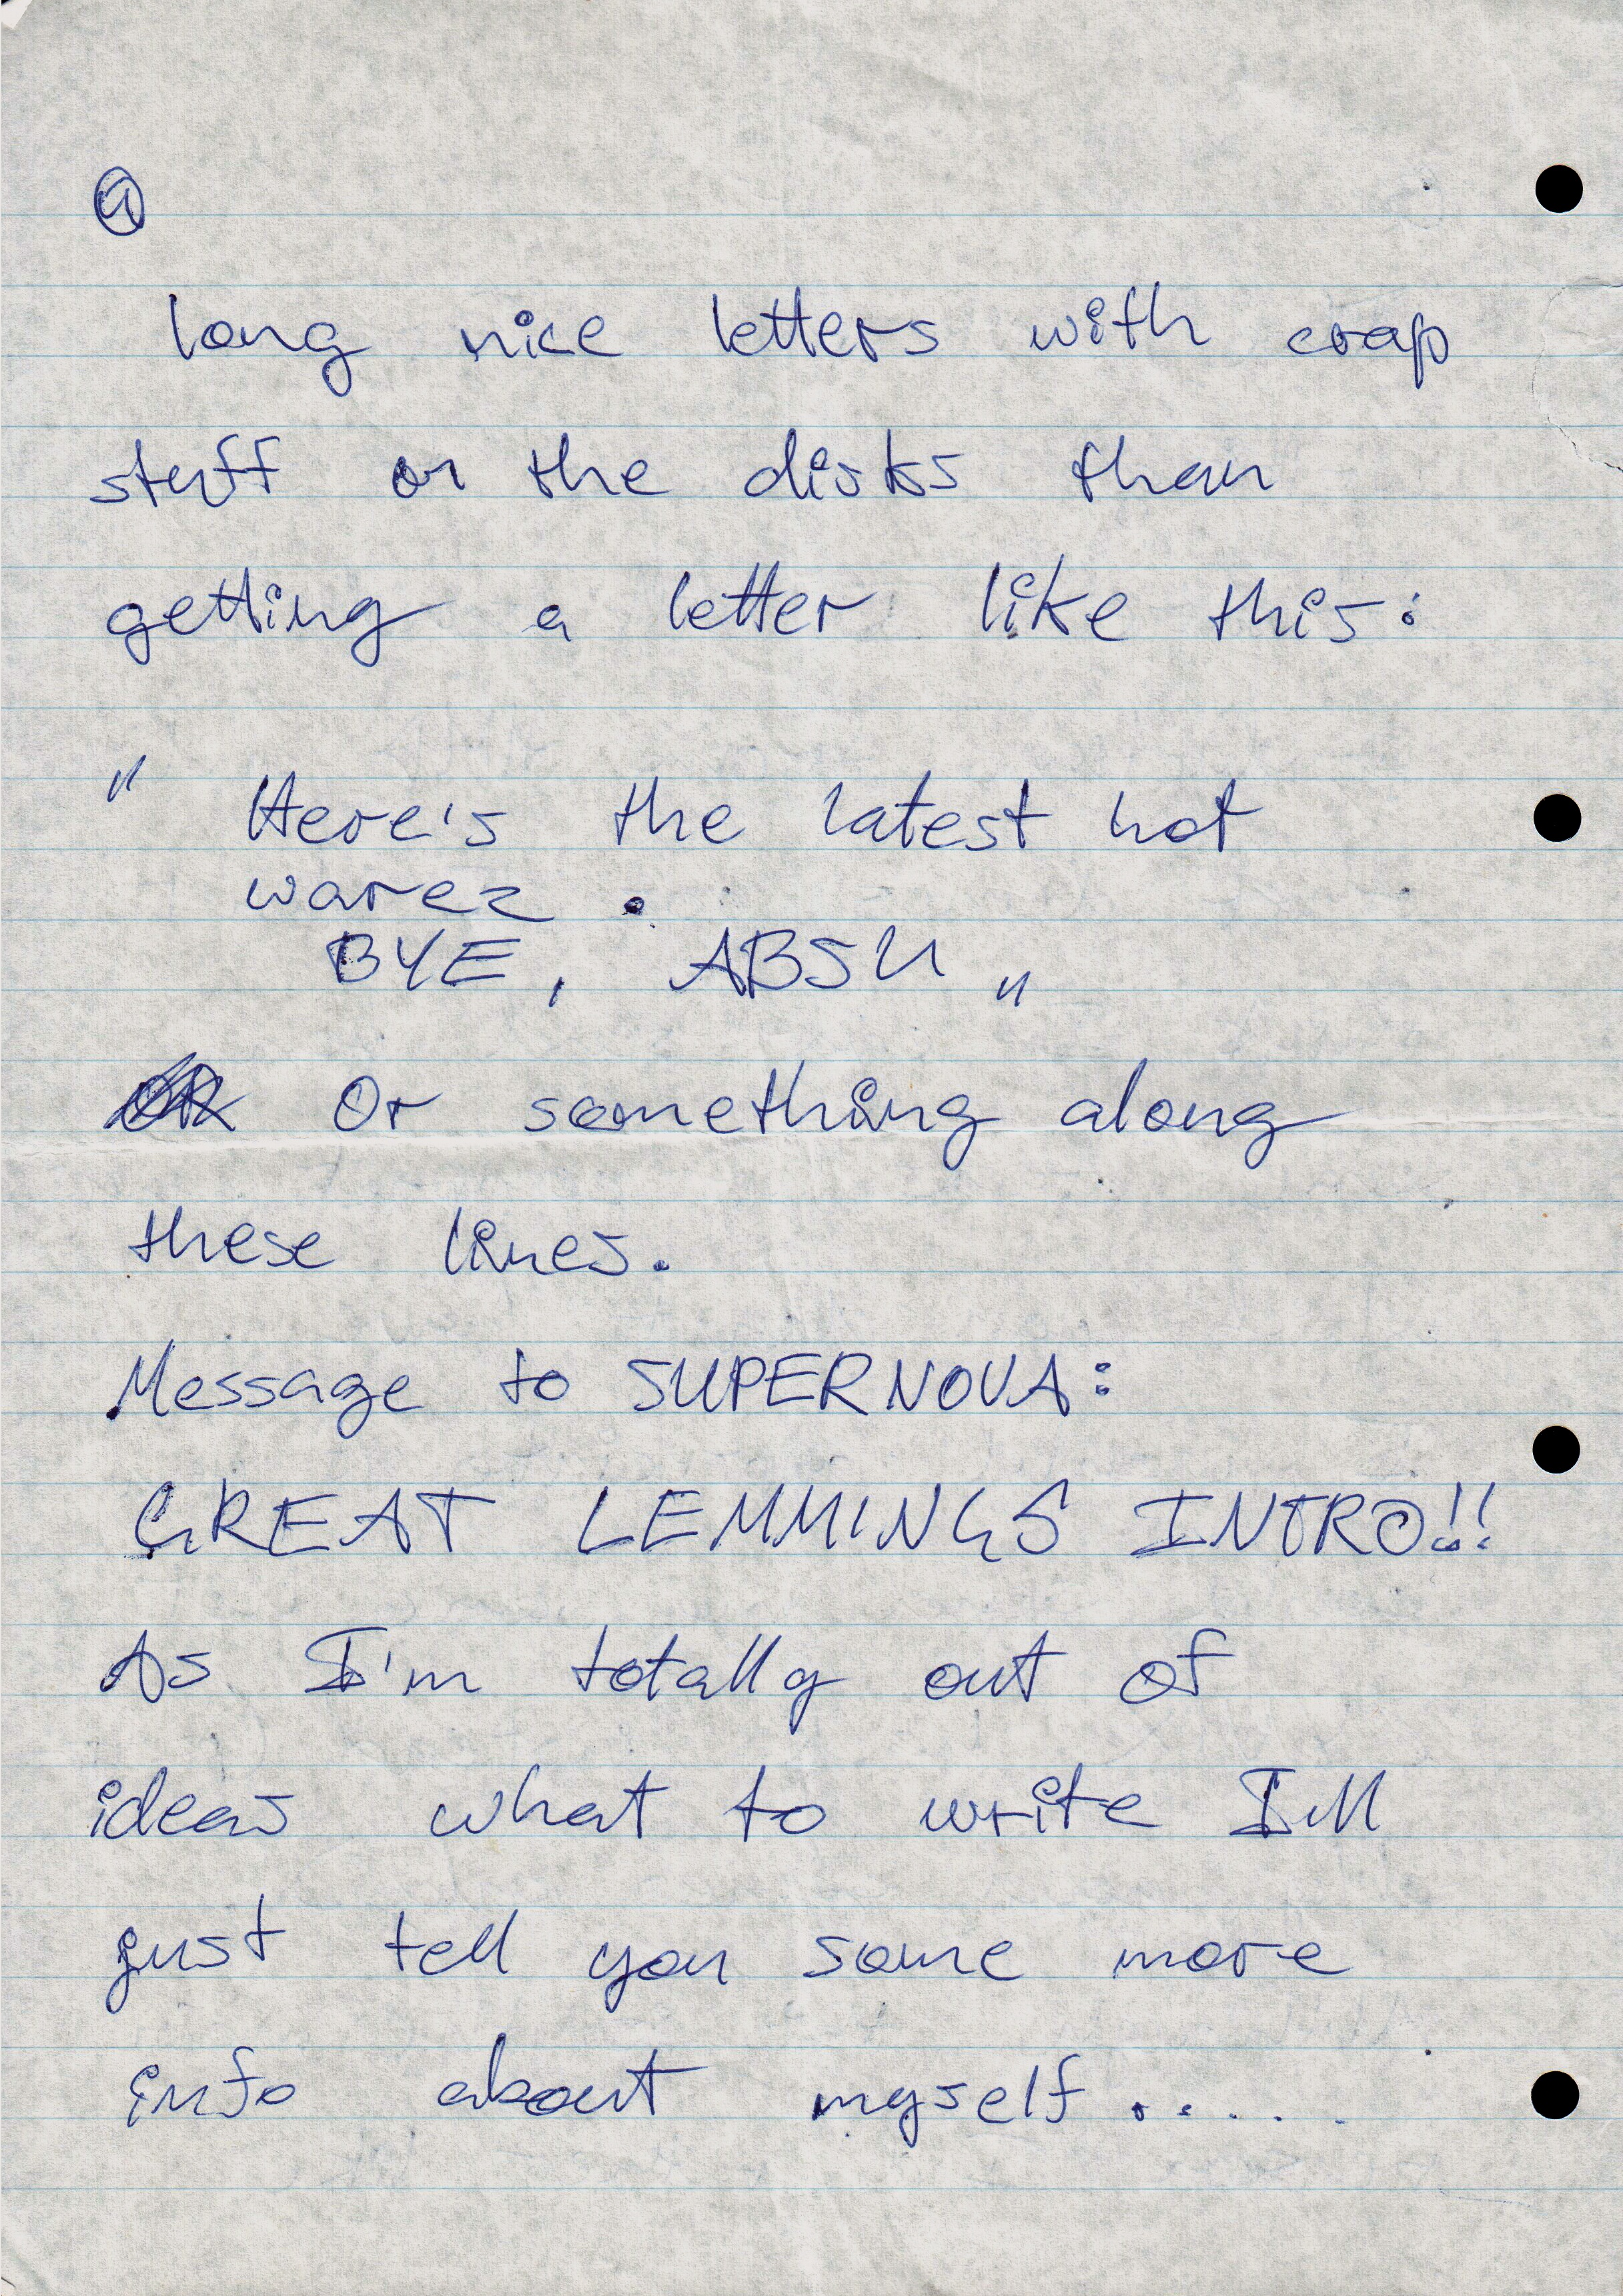 long nice letters with crap
stuff on the disks than
getting a letter like this:
" Here's the latest hot
warez .
BYE, ABSU "
Or something along
these lines.
Message to SUPERNOVA:
GREAT LEMMINGS INTRO!!
As I'm totally out of
ideas what to write I'll
just tell you some more
info about myself.....